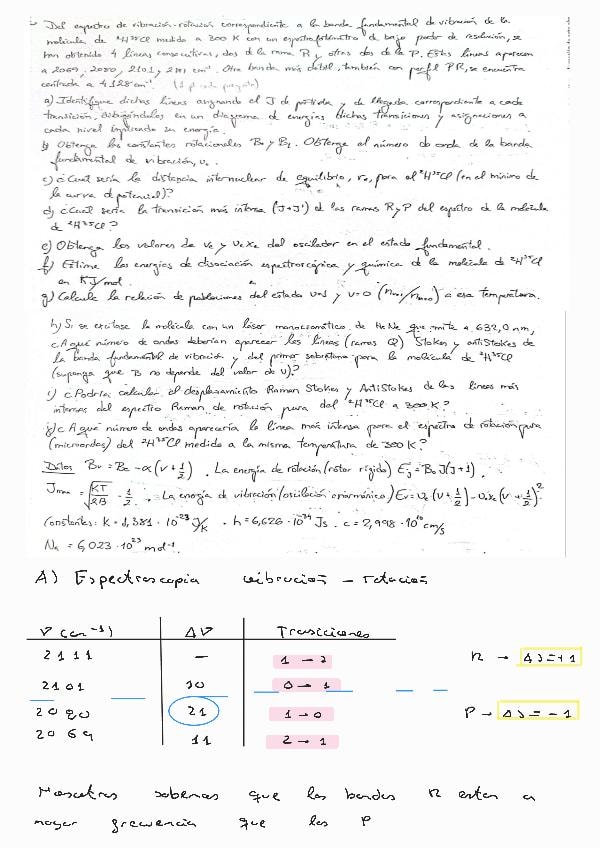 Del espectro de vibración-rotación correspondiente a la banda fundamental de vibración de la
molécula de ²H³⁵Cl medido a 300 K con un espectrofotómetro de bajo poder de resolución, se
han obtenido 4 líneas consecutivas, dos de la rama R y otras dos de la P. Estas líneas aparecen
a 2069, 2080, 2101 y 2111 cm⁻¹. Otra banda más débil, también con perfil PR, se encuentra
centrada a 4128 cm⁻¹.
a) Identifique dichas líneas asignando el J de partida y de llegada correspondiente a cada
transición, dibujándolas en un diagrama de energías dichas transiciones y asignaciones a
cada nivel implicado su energía.
b) Obtenga las constantes rotacionales B₀ y B₁. Obtenga el número de onda de la banda
fundamental de vibración, ν₀.
c) ¿Cuál sería la distancia internuclear de equilibrio, re, para el ²H³⁵Cl (en el mínimo de
la curva de potencial)?
d) ¿Cuál sería la transición más intensa (J→J') de las ramas R y P del espectro de la molécula
de ²H³⁵Cl?
e) Obtenga los valores de νe y νeXe del oscilador en el estado fundamental.
f) Estime las energías de disociación espectroscópica y química de la molécula de ²H³⁵Cl
en KJ/mol.
g) Calcule la relación de poblaciones del estado v=1 y v=0 (nv=1/nv=0) a esa temperatura.
h) Si se excitase la molécula con un láser monocromático de HeNe que emite a 632,8 nm,
¿A qué número de ondas deberían aparecer las líneas (ramas Q) Stokes y antiStokes de
la banda fundamental de vibración y del primer sobretono para la molécula de ²H³⁵Cl
(suponga que B no depende del valor de v)?
i) ¿Podría calcular el desplazamiento Raman Stokes y AntiStokes de las líneas más
intensas del espectro Raman de rotación pura del ²H³⁵Cl a 300 K?
j) ¿A qué número de ondas aparecería la línea más intensa para el espectro de rotación pura
(microondas) del ²H³⁵Cl medido a la misma temperatura de 300 K?
Datos Bv = Be - α(v + 1/2) . La energía de rotación (rotor rígido) Ej = Bv J(J+1) .
Jmax = √(KT/2B) - 1/2 . La energía de vibración (oscilación anarmónica) Ev = νe(v + 1/2) - νeXe(v + 1/2)²
Constantes: K = 1,381 · 10⁻²³ J/K . h = 6,626 · 10⁻³⁴ Js . c = 2,998 · 10¹⁰ cm/s
NA = 6,023 · 10²³ mol⁻¹.
A) Espectroscopia vibración - rotación
ν (cm⁻¹) Δν Transiciones
2111 - 1 → 2 R → ΔJ=+1
2101 10 0 → 1
2080 21 1 → 0 P → ΔJ=-1
2069 11 2 → 1
Nosotros sabemos que las bandas R estan a
mayor frecuencia que las P